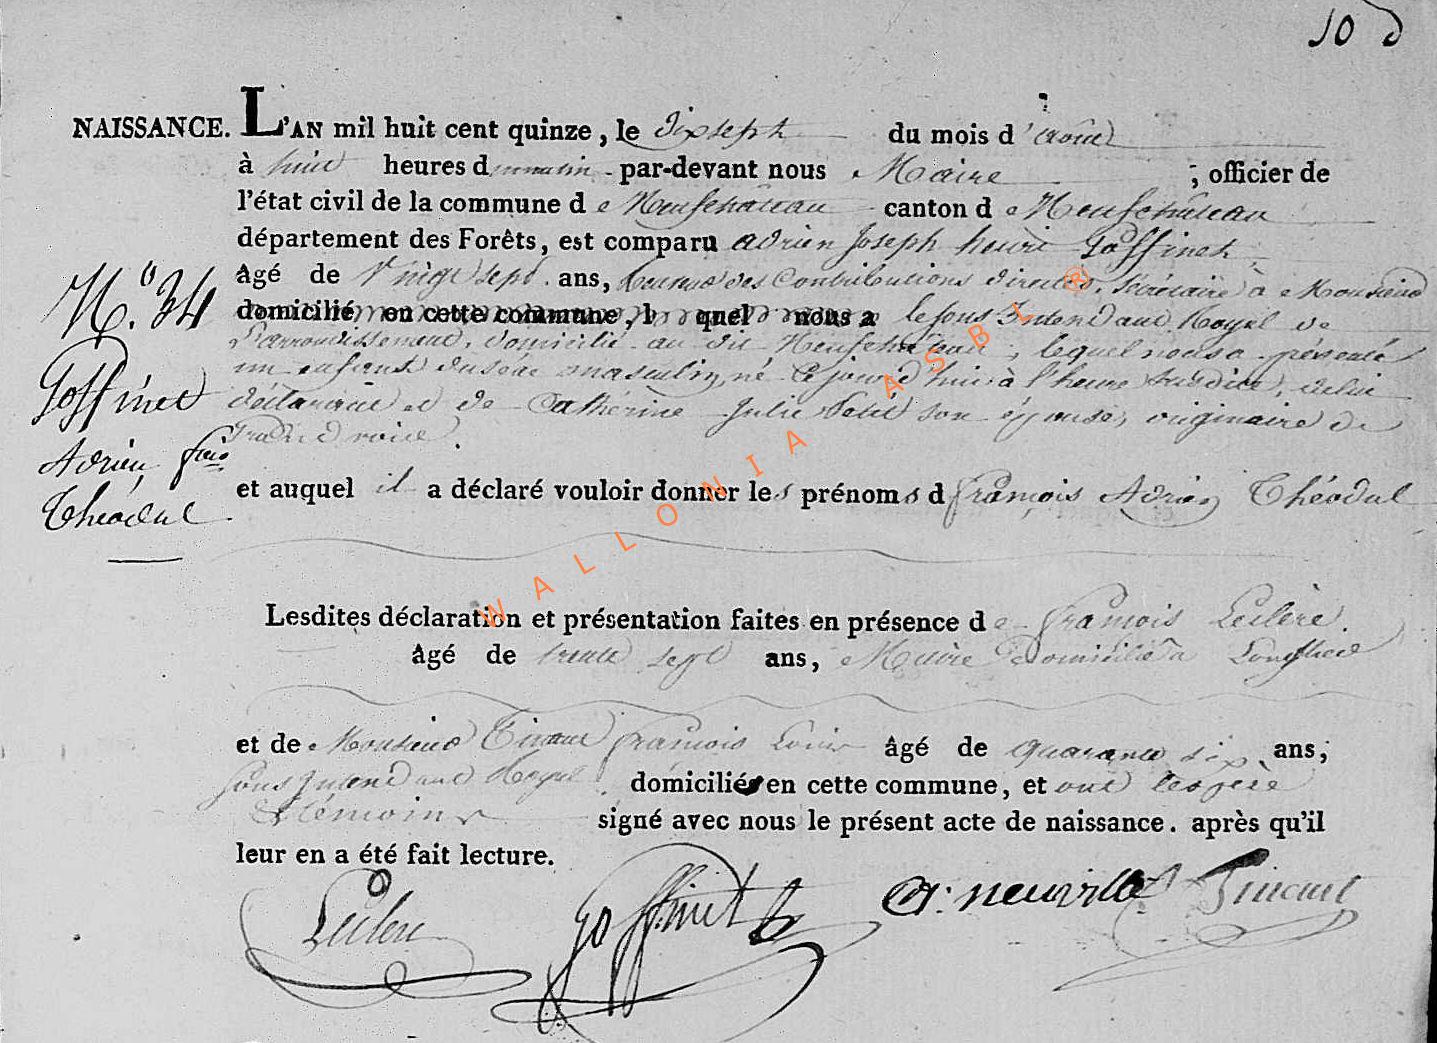 10 d
NAISSANCE. L'AN mil huit cent quinze, le dixsept du mois d'aout
à huit heures d u matin par-devant nous Maire ; officier de
l'état civil de la commune d e Neufchâteau canton d e Neufchateau
département des Forêts, est comparu adrien Joseph henri Goffinet
âgé de Vingt sept ans, des Contributions directes, Sécrétaire à Monsieur
domicilié en cette commune, l quel nous a le sous Intendant Royal de
L'arrondissement, domicilié au dit Neufchateau, lequel nous a présenté
un enfant du séxe masculin, né ce jourd'hui à l'heure susdite, de lui
déclarant et de Cathérine Julie Petit son épouse, originaire de
N.° 34
Goffinet
Adrien, frcois
Théodul
et auquel il a déclaré vouloir donner les prénoms d François Adrien Théodul
Lesdites déclaration et présentation faites en présence d e François Leclère
âgé de trente sept ans, Maire domicilié à Longlier
et de Monsieur Tinant François Louis âgé de quarante six ans,
sous Intendant Royal domiciliés en cette commune, et ont les père
& témoins signé avec nous le présent acte de naissance. après qu'il
leur en a été fait lecture.
Leclere Goffinet A. neuville Tinant
WALLONIA ASBL ®